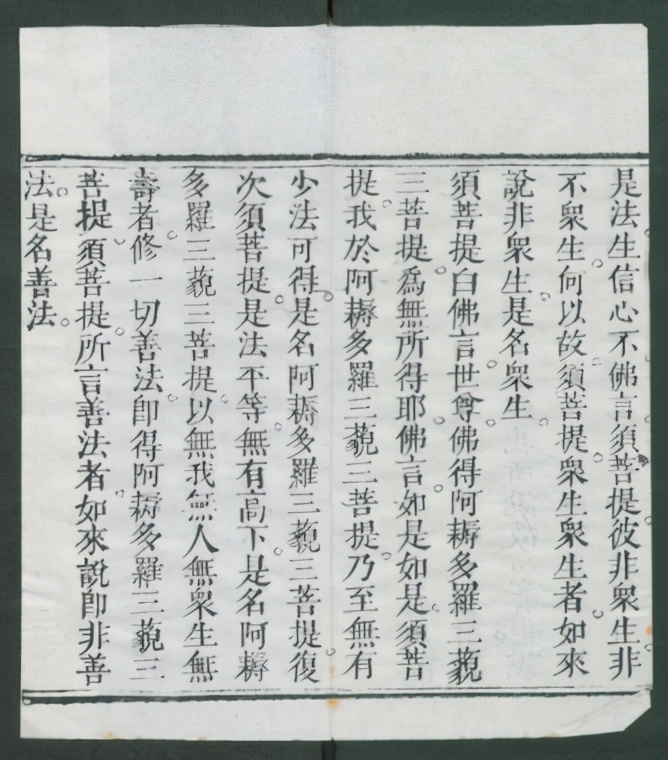 是法生信心不佛言須菩提彼非衆生非
不衆生何以故須菩提衆生衆生者如來
說非衆生是名衆生
須菩提白佛言世尊佛得阿耨多羅三藐
三菩提爲無所得耶佛言如是如是須菩
提我於阿耨多羅三藐三菩提乃至無有
少法可得是名阿耨多羅三藐三菩提復
次須菩提是法平等無有高下是名阿耨
多羅三藐三菩提以無我無人無衆生無
壽者修一切善法即得阿耨多羅三藐三
菩提須菩提所言善法者如來說即非善
法是名善法